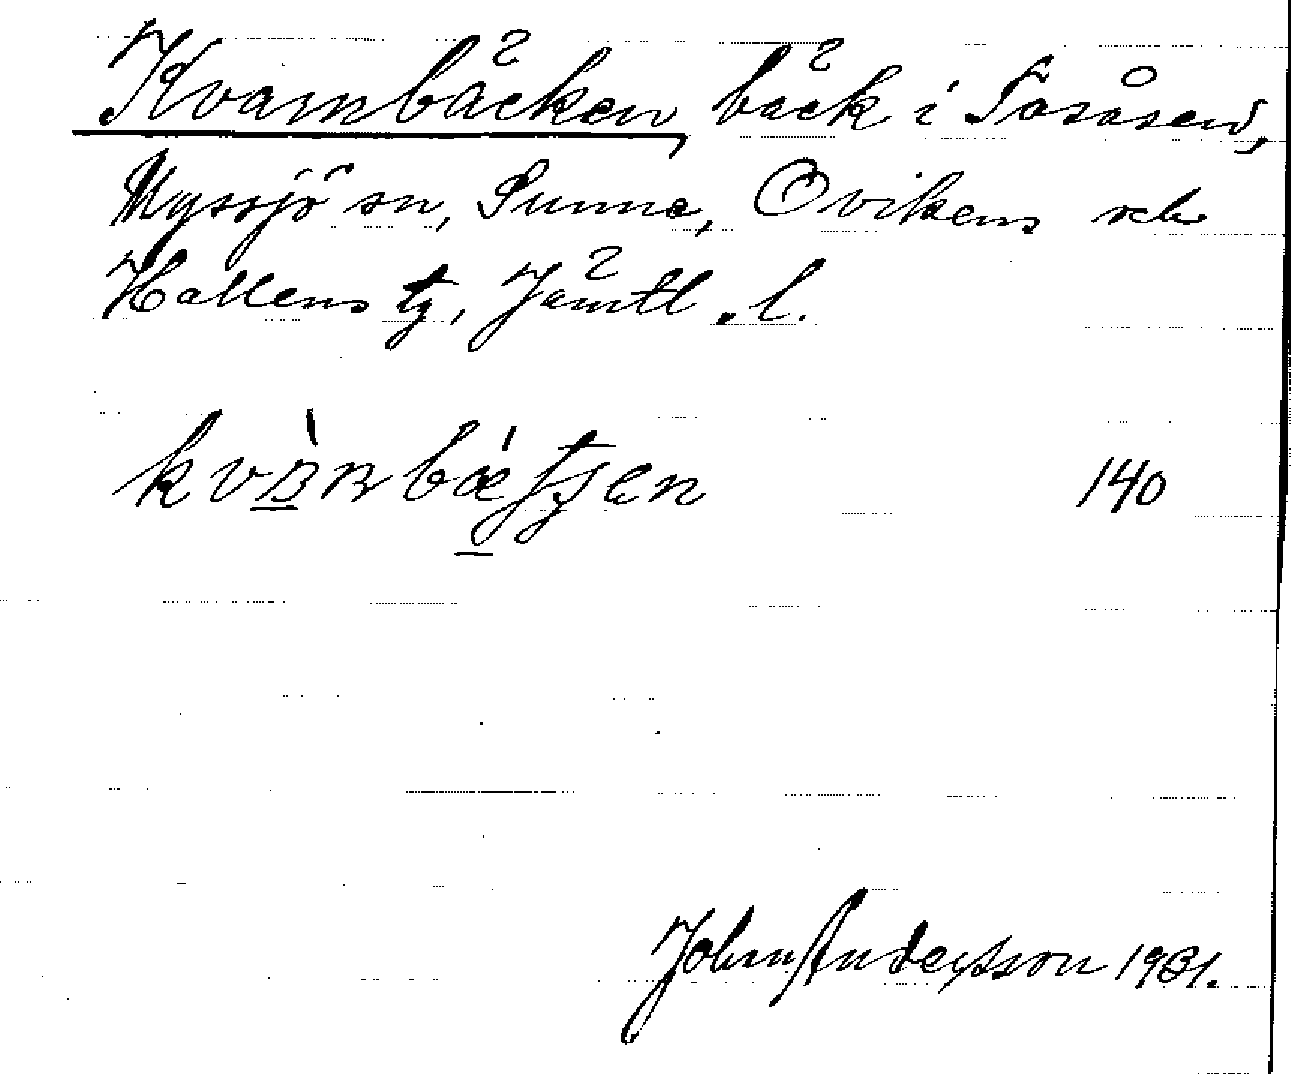 Kvarnbäcken, bäck i Tåsåsen,
Myssjö sn, Sunne, Ovikens och
Hallens tg, Jämtl. l.
140
John Andersson 1931.